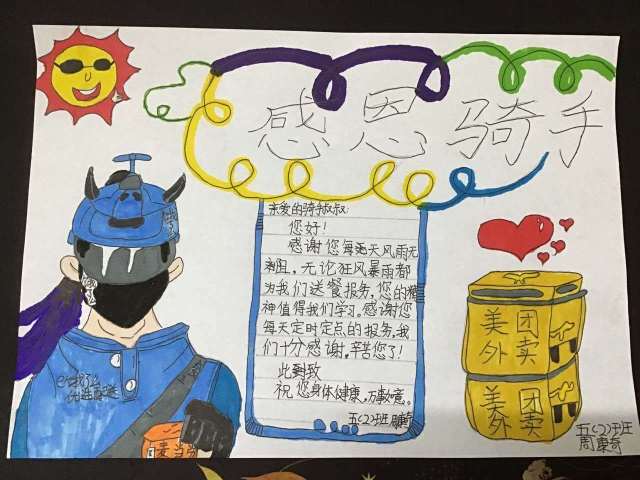 感恩骑手
亲爱的骑手叔叔:
您好!
感谢您每天风雨无
阻,无论狂风暴雨都
为我们送餐报务,您的精
神值得我们学习。感谢您
每天定时定点的报务,我
们十分感谢,辛苦您了!
此致
祝您身体健康,万事如意。
五(2)班
饿了么
麦当
美团
外卖
美团
外卖
五(2)班
周康奇